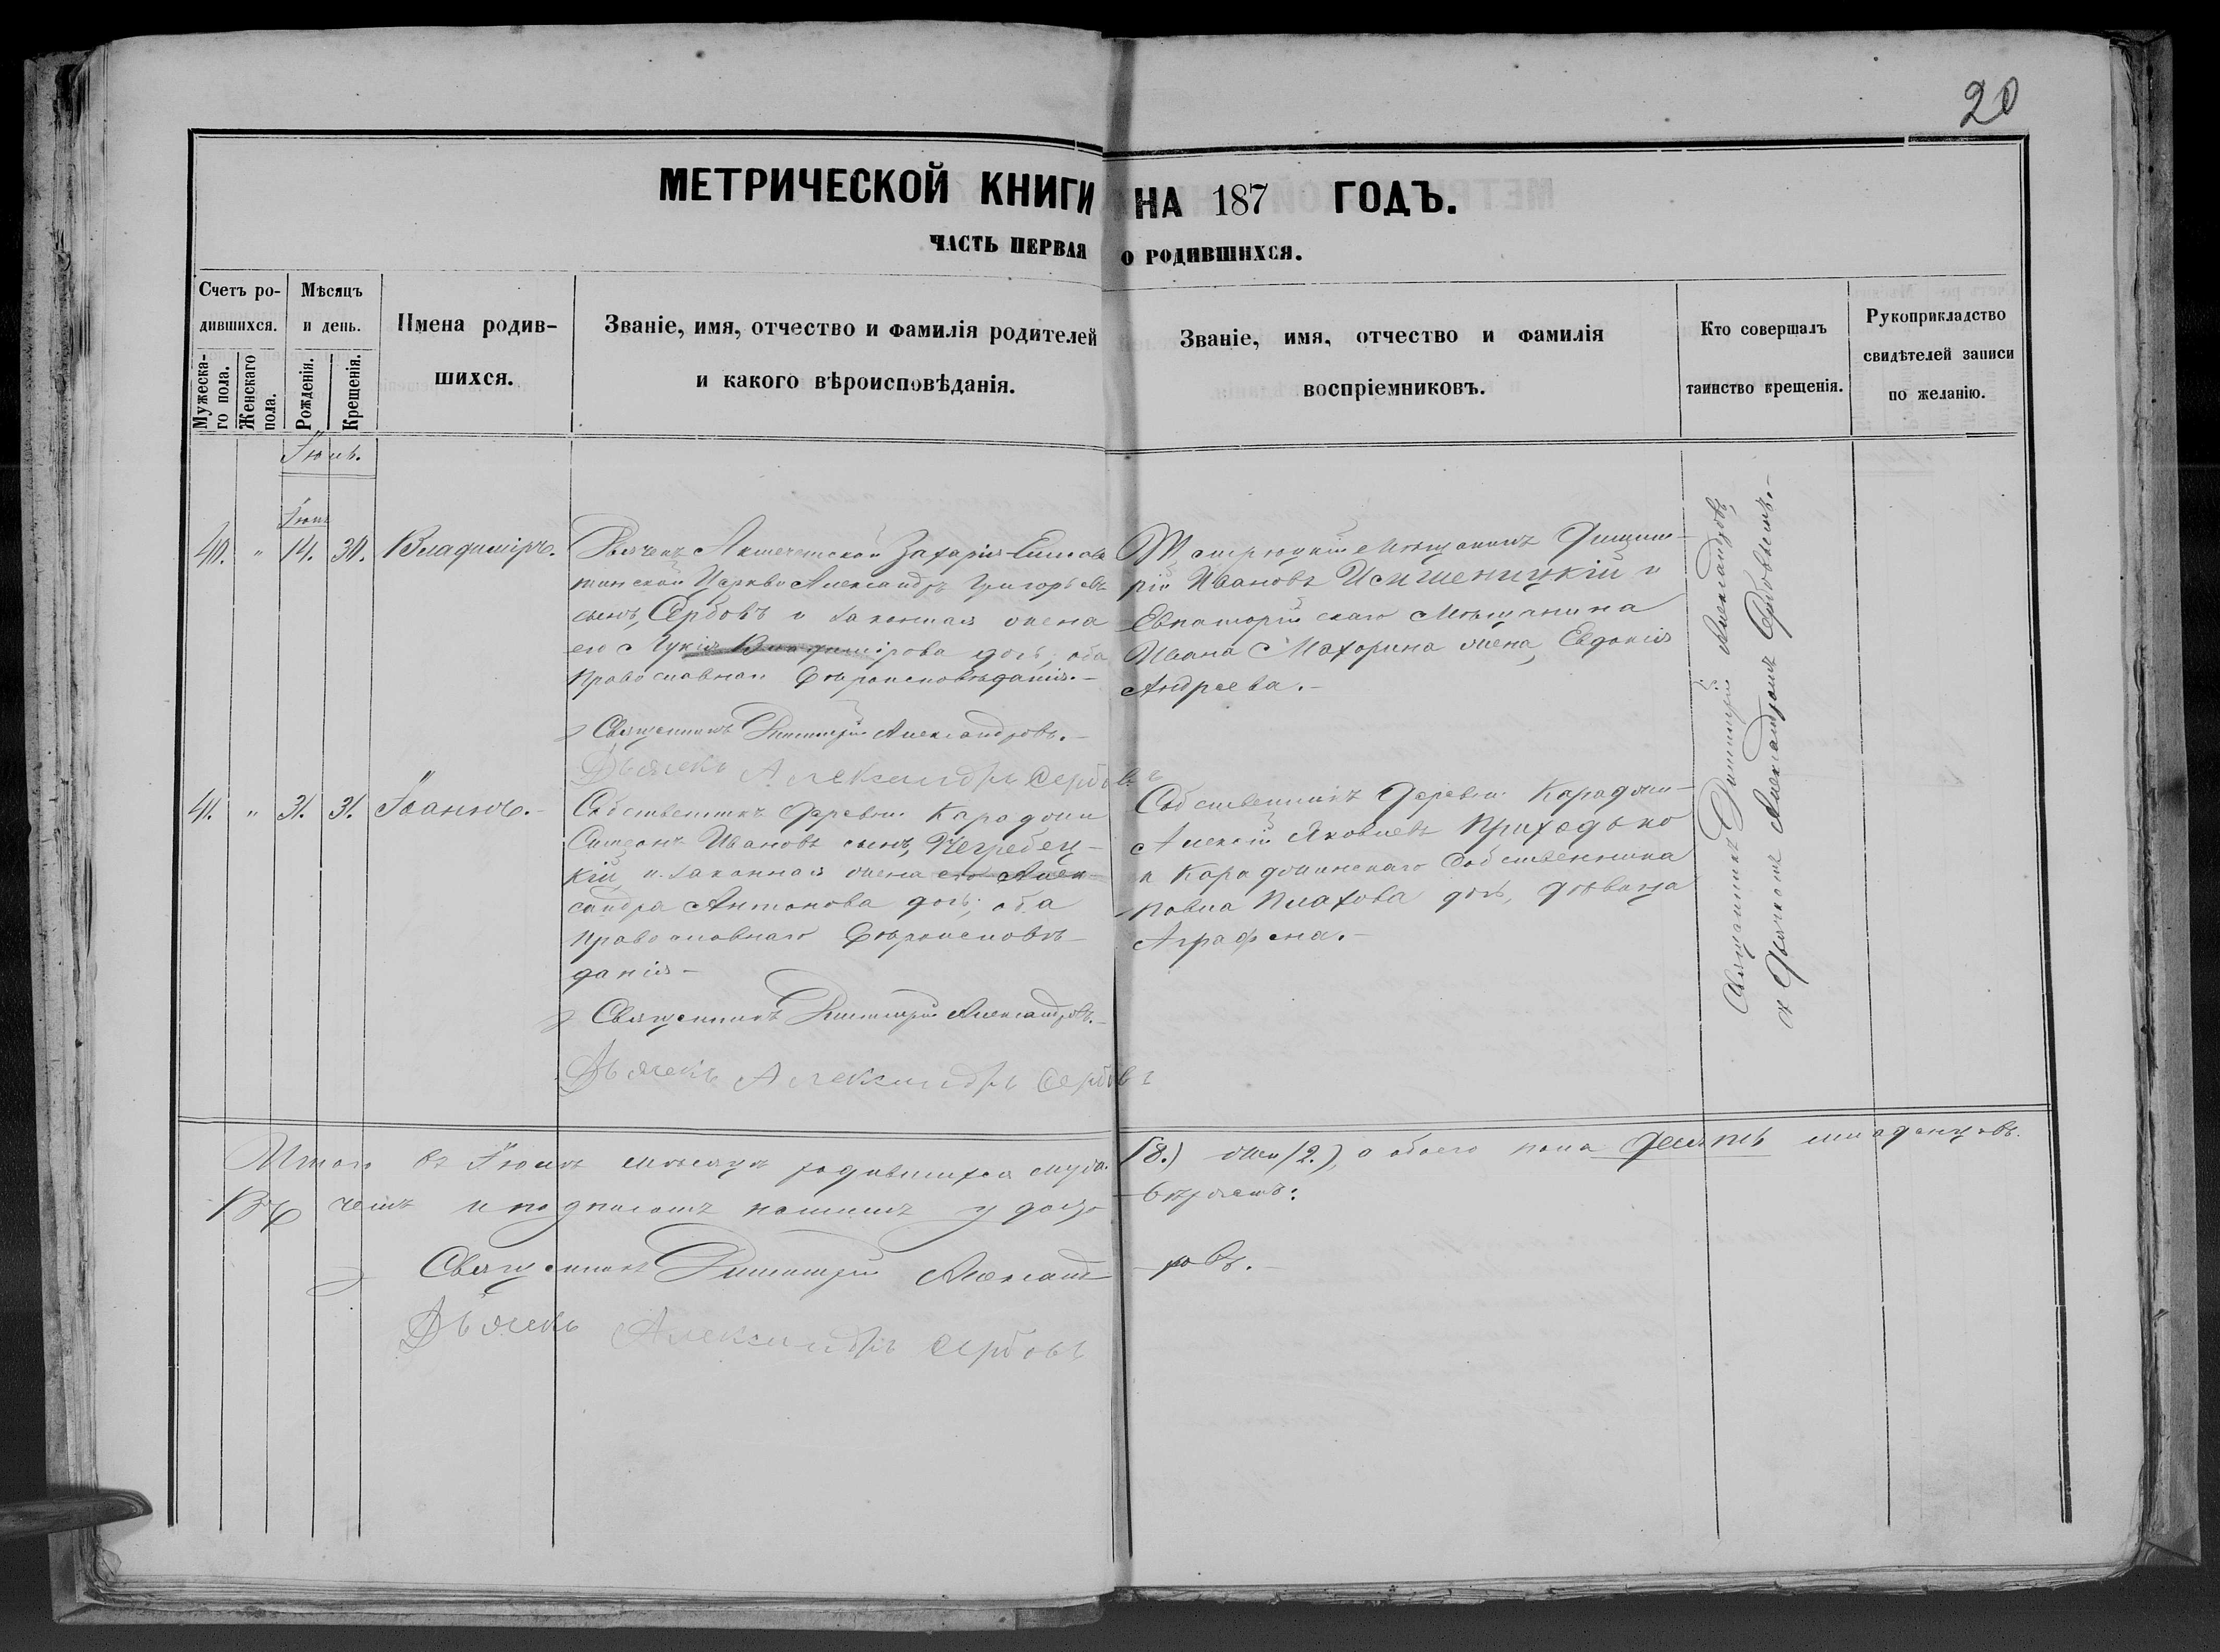 20
МЕТРИЧЕСКОЙ КНИГИ НА 187 ГОДЪ.
ЧАСТЬ ПЕРВАЯ О РОДИВШИХСЯ.
Счетъ ро-
дившихся.
Мужеска-
го пола.
Женскаго
пола.
Мѣсяцъ
и день.
Рожденія.
Крещенія.
Имена родив-
шихся.
Званіе, имя, отчество и фамилія родителей
и какого вѣроисповѣданія.
Званіе, имя, отчество и фамилія
воспріемниковъ.
Кто совершалъ
таинство крещенія.
Рукоприкладство
свидѣтелей записи
по желанію.
40. " 14. 30. Владиміръ.
Дьячекъ Акмечетской Захаріе-Елисаве
тинской Церкви Александръ Григорьевъ
сынъ, Сербовъ и законная жена
его Владимірова дочь, оба
православнаго вѣроисповѣданія.-
Священникъ Димитрій Александровъ.-
Дьячекъ Александръ Сербовъ
мѣщанинъ Димит-
рій Ивановъ и
Евпаторійскаго мѣщанина
Ивана жена, Евдокія
Андреева.-
41. " 31. 31. Іоаннъ.-
Собственникъ деревни Караджи
Симеонъ Ивановъ сынъ,
кій и законная жена его Алек-
сандра Антонова дочь, оба
православнаго вѣроисповѣ-
данія-
Священникъ Димитрій Александровъ.-
Дьячекъ Александръ Сербовъ
Собственникъ деревни Караджи-
Алексій Яковлевъ Приходько
и Караджинскаго собственника
Павла Плахова дочь, дѣвица
Аграфена.-
Священникъ Димитрій Александровъ
съ Дьячкомъ Александромъ Сербовымъ.-
Итого въ мѣсяцѣ родившихся муж. (8.) жен (2.), а обоего пола десять младенцовъ.
Въ чемъ и подписомъ нашимъ удосто-вѣряемъ:
Священникъ Димитрій Александ-ровъ.-
Дьячекъ Александръ Сербовъ